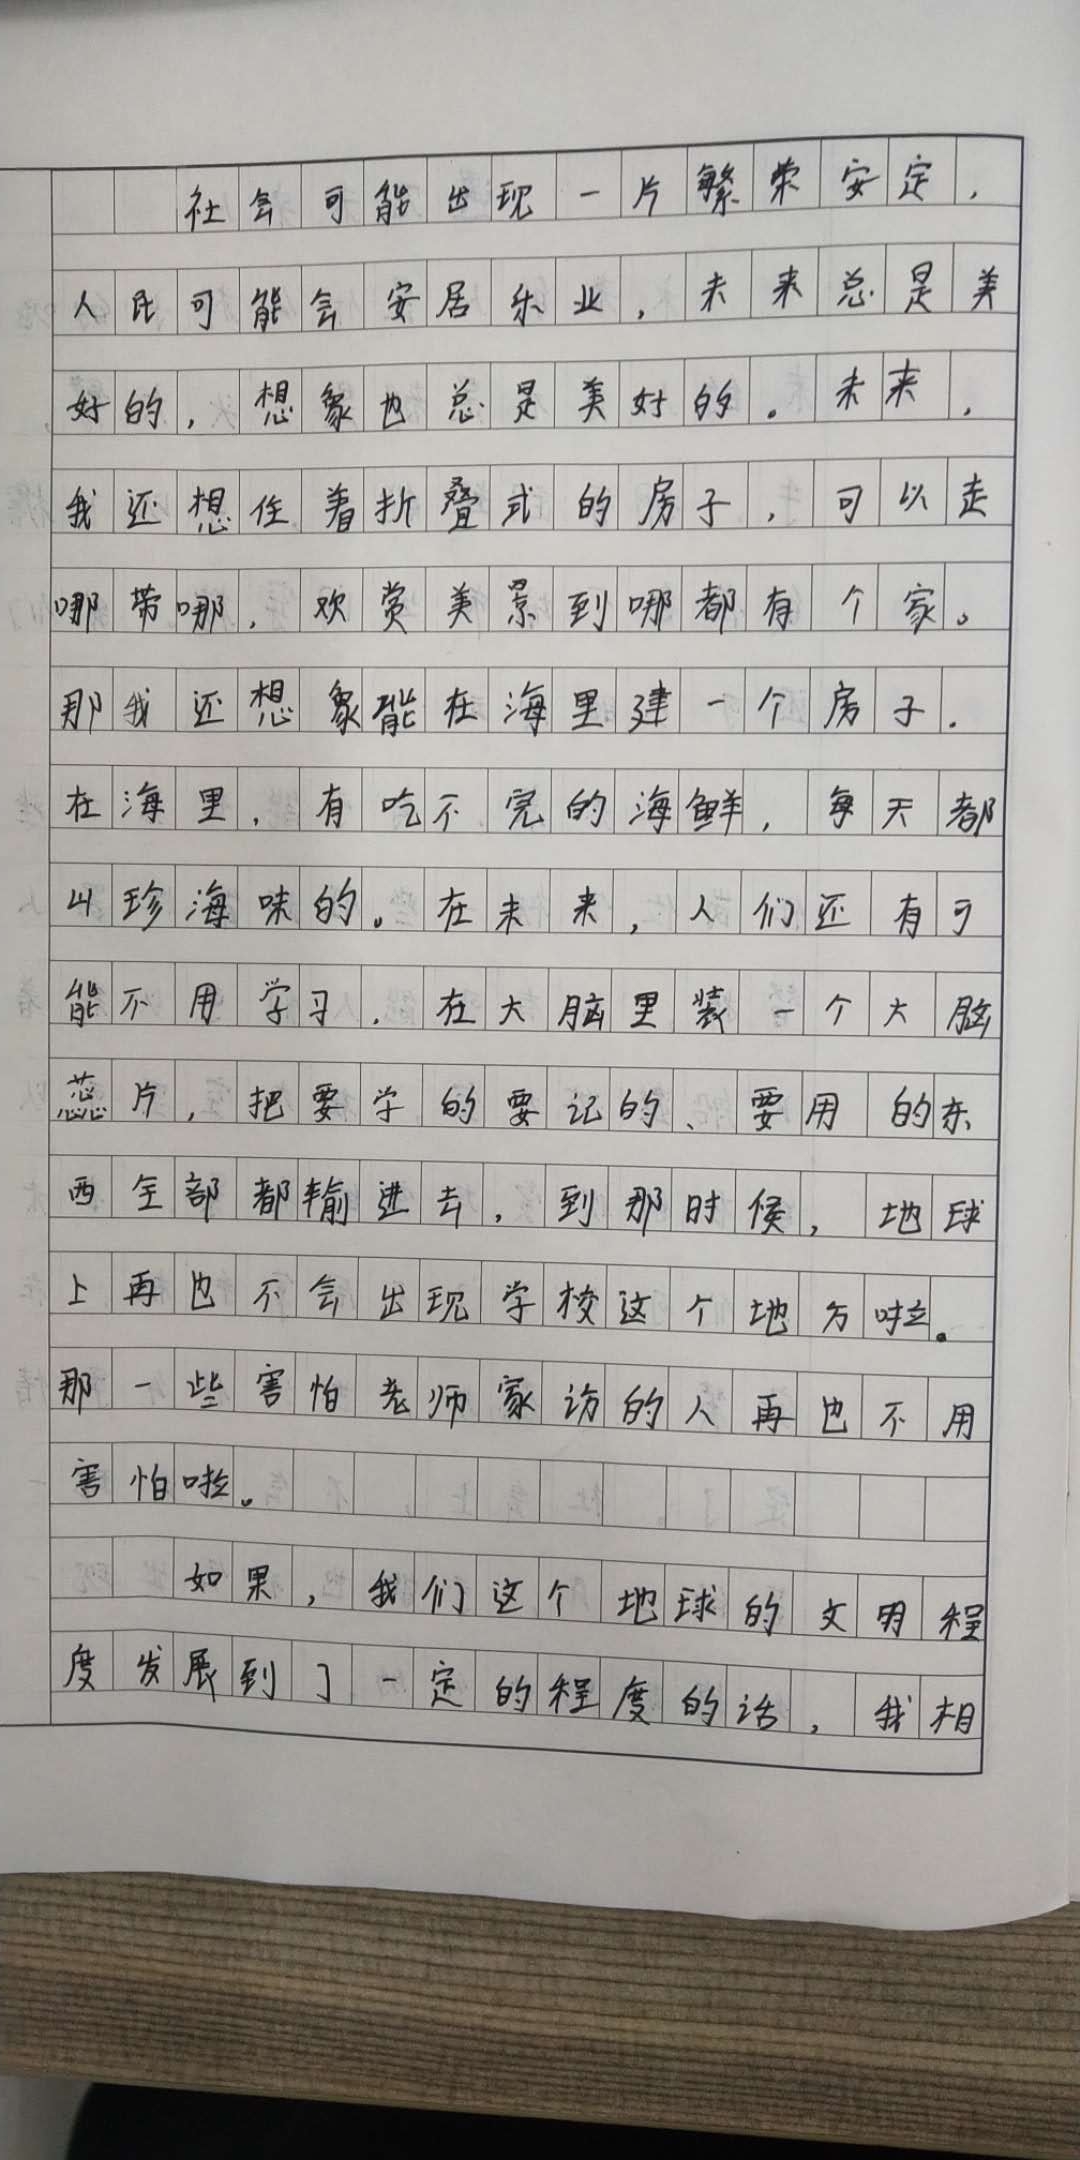 社会可能出现一片繁荣安定，
人民可能会安居乐业，未来总是美
好的，想象也总是美好的。未来，
我还想住着折叠式的房子，可以走
哪带哪，欢赏美景到哪都有个家。
那我还想象能在海里建一个房子．
在海里，有吃不完的海鲜，每天都
山珍海味的。在未来，人们还有可
能不用学习．在大脑里装一个大脑
蕊片，把要学的要记的、要用的东
西全部都输进去，到那时候，地球
上再也不会出现学校这个地方啦。
那一些害怕老师家访的人再也不用
害怕啦。
如果，我们这个地球的文明程
度发展到了一定的程度的话，我相